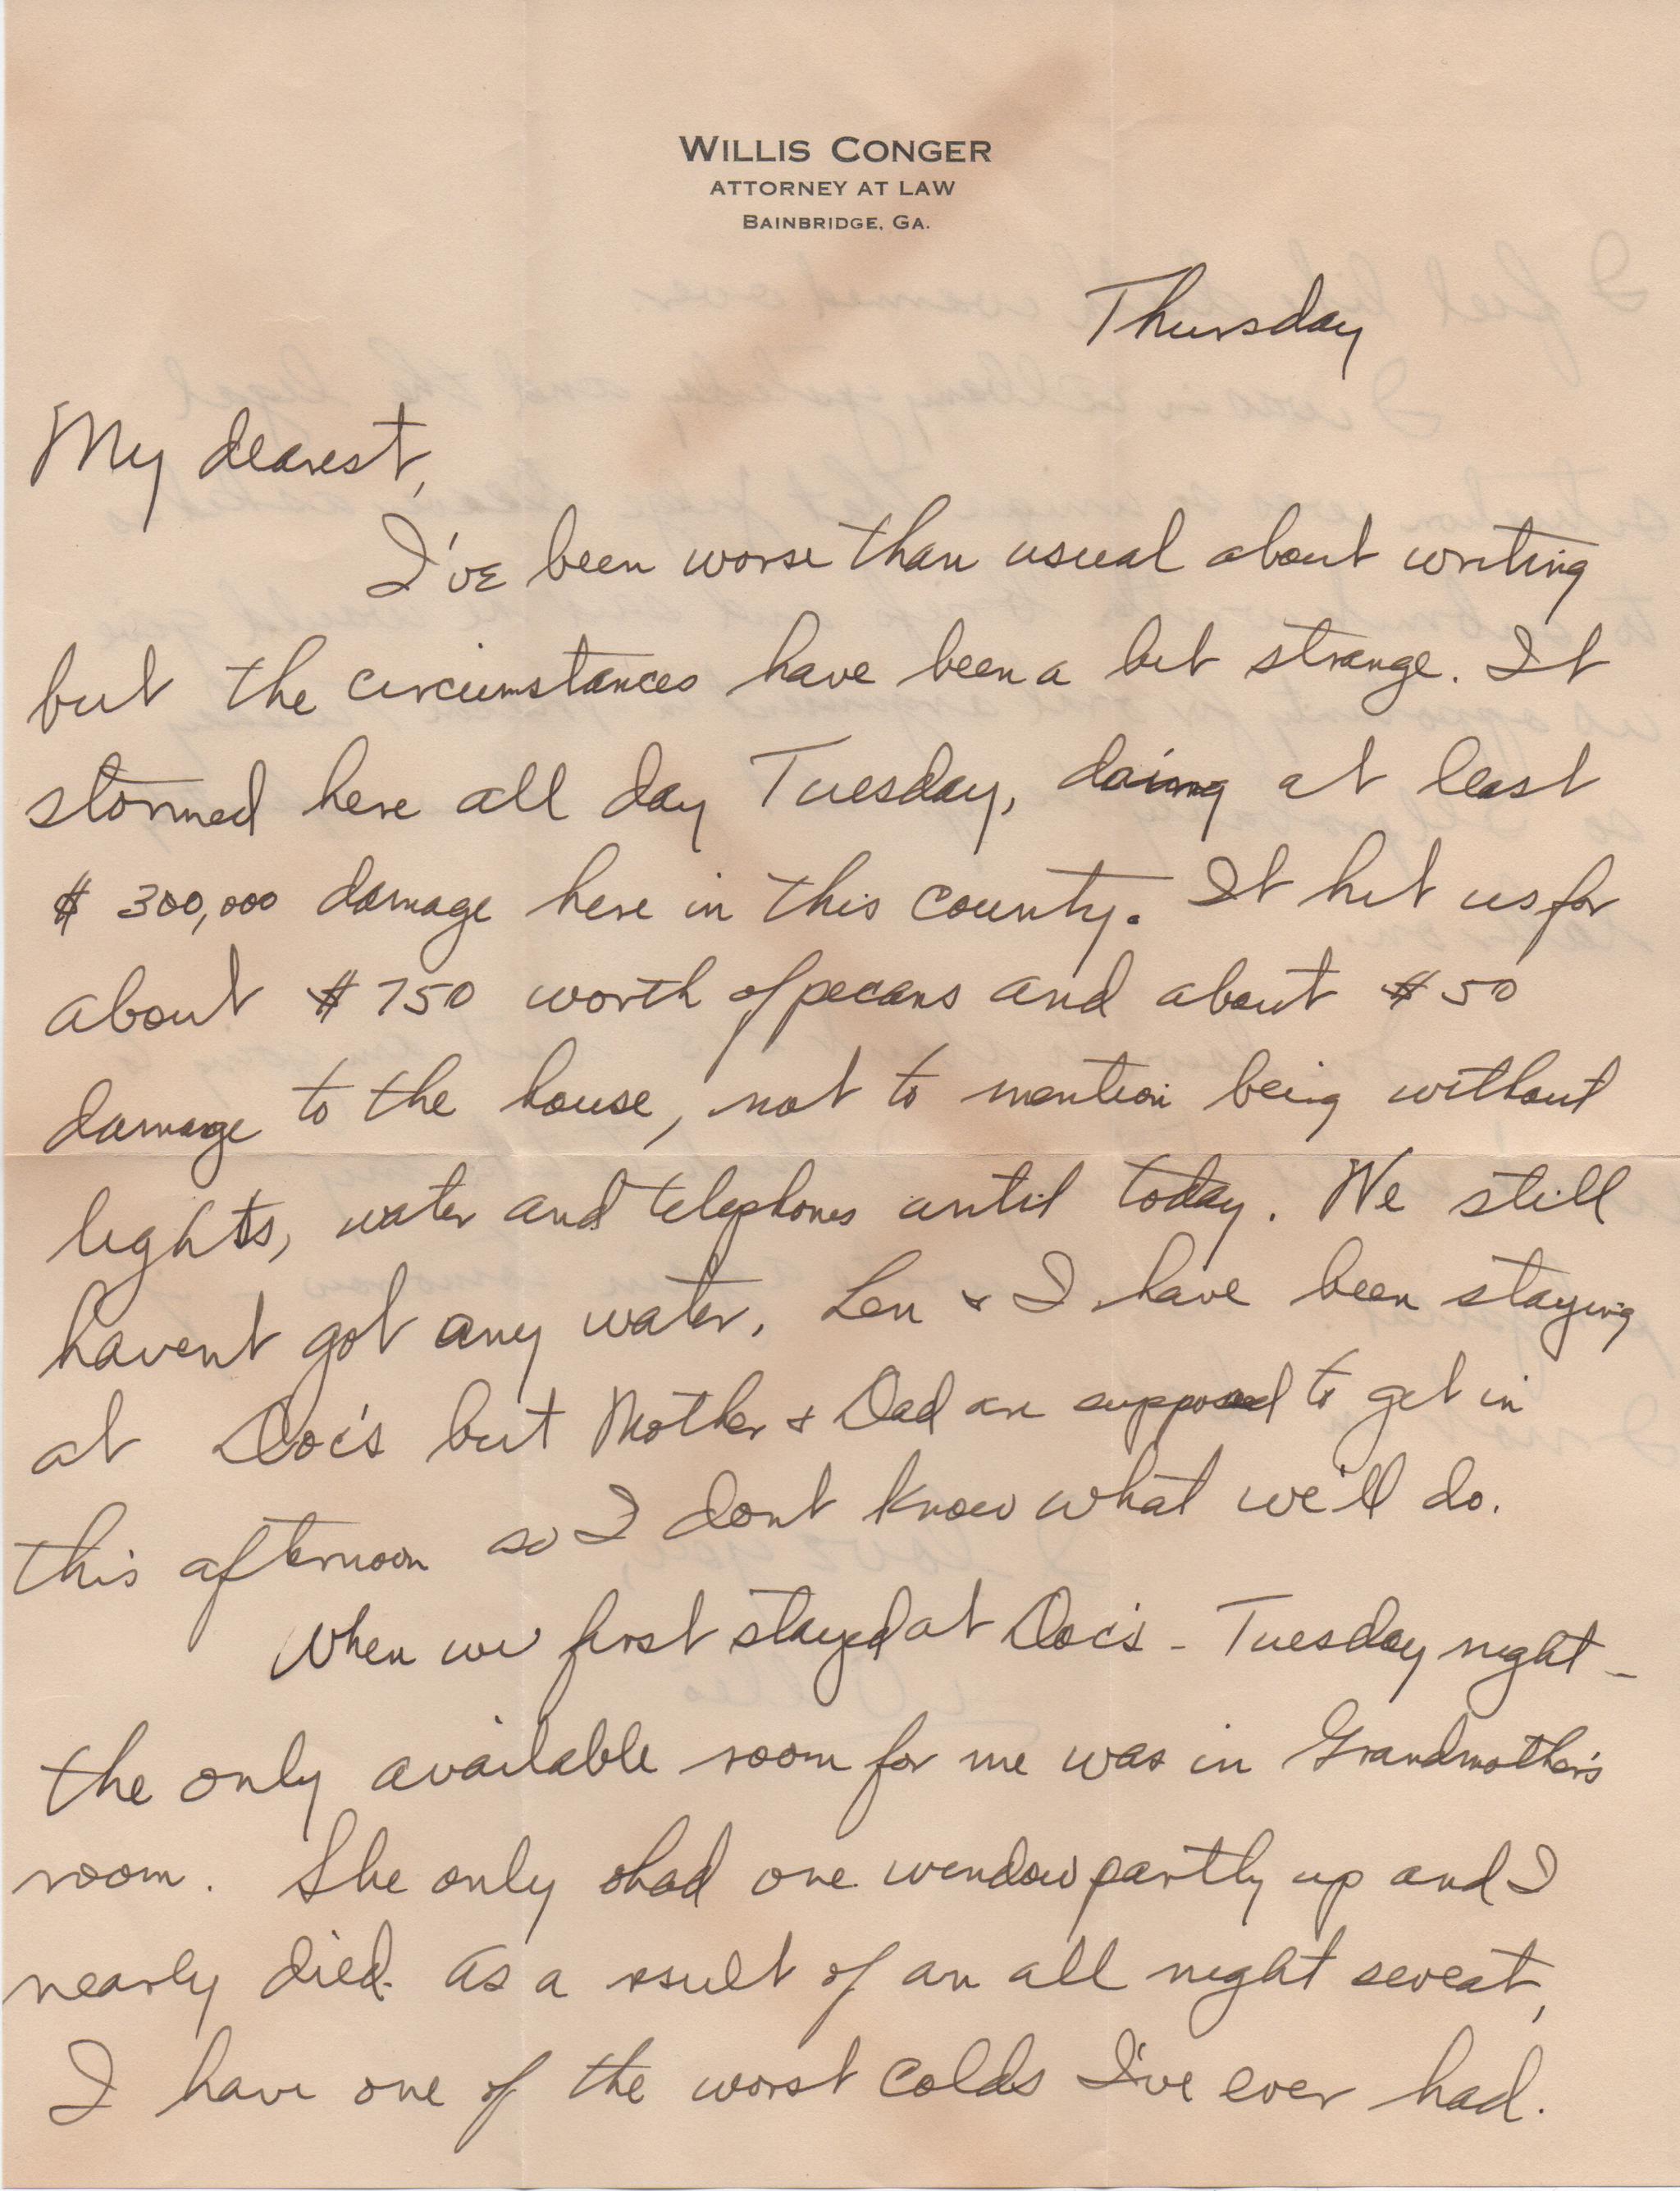 WILLIS CONGER
ATTORNEY AT LAW
BAINBRIDGE, GA.
Thursday
My dearest,
I've been worse than usual about writing
but the circumstances have been a bit strange. It
stormed here all day Tuesday, doing at least
$300,000 damage here in this county. It hit us for
about $750 worth of pecans and about $50
damage to the house, not to mention being without
lights, water and telephones until today. We still
havent got any water. Len & I have been staying
at Doc's but Mother & Dad are supposed to get in
this afternoon so I dont know what we'll do.
When we first stayed at Doc's - Tuesday night -
the only available room for me was in Grandmother's
room. She only had one window partly up and I
nearly died. As a result of an all night sweat,
I have one of the worst colds I've ever had.